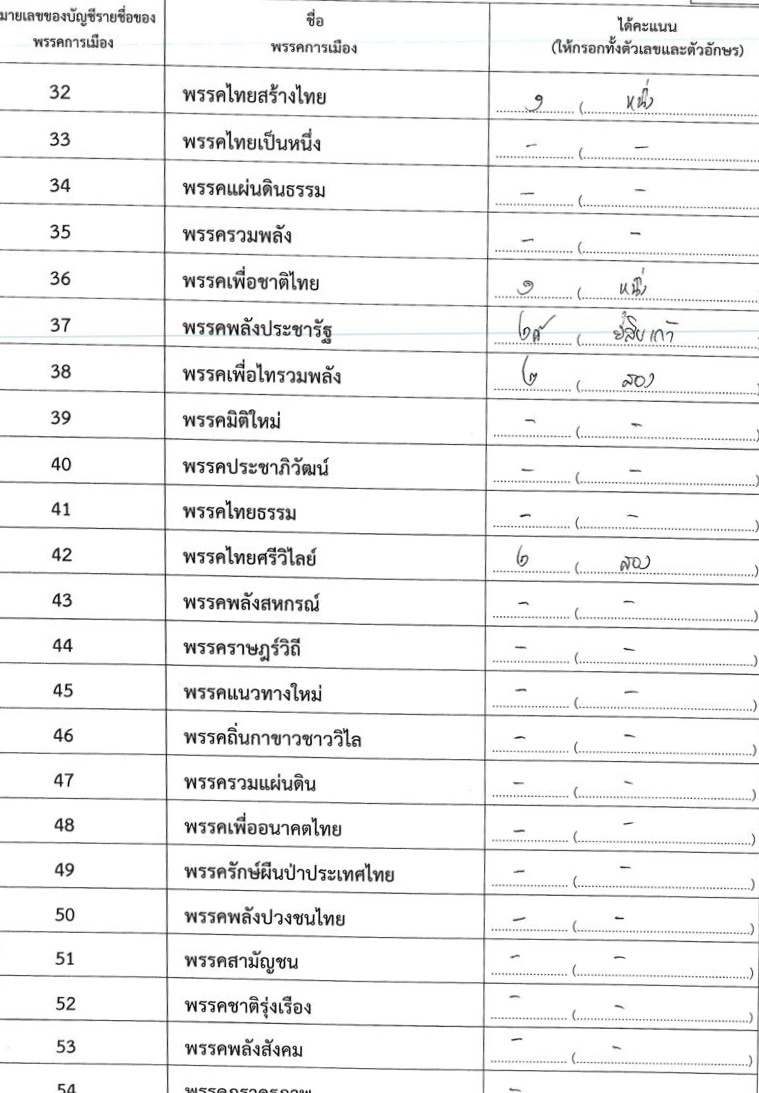 มายเลขของบัญชีรายชื่อของ
พรรคการเมือง
ชื่อ
พรรคการเมือง
ได้คะแนน
(ให้กรอกทั้งตัวเลขและตัวอักษร)
32 พรรคไทยสร้างไทย ๑ (หนึ่ง
33 พรรคไทยเป็นหนึ่ง - ( -
34 พรรคแผ่นดินธรรม - ( -
35 พรรครวมพลัง - ( -
36 พรรคเพื่อชาติไทย ๑ (หนึ่ง
37 พรรคพลังประชารัฐ ๒๙ (ยี่สิบเก้า
38 พรรคเพื่อไทรวมพลัง ๒ (สอง )
39 พรรคมิติใหม่ - ( - )
40 พรรคประชาภิวัฒน์ - ( - )
41 พรรคไทยธรรม - ( - )
42 พรรคไทยศรีวิไลย์ ๒ (สอง )
43 พรรคพลังสหกรณ์ - ( - )
44 พรรคราษฎร์วิถี - ( - )
45 พรรคแนวทางใหม่ - ( - )
46 พรรคถิ่นกาขาวชาววิไล - ( - )
47 พรรครวมแผ่นดิน - ( - )
48 พรรคเพื่ออนาคตไทย - ( - )
49 พรรครักษ์ผืนป่าประเทศไทย - ( - )
50 พรรคพลังปวงชนไทย - ( - )
51 พรรคสามัญชน - ( - )
52 พรรคชาติรุ่งเรือง - ( - )
53 พรรคพลังสังคม - ( - )
54 -